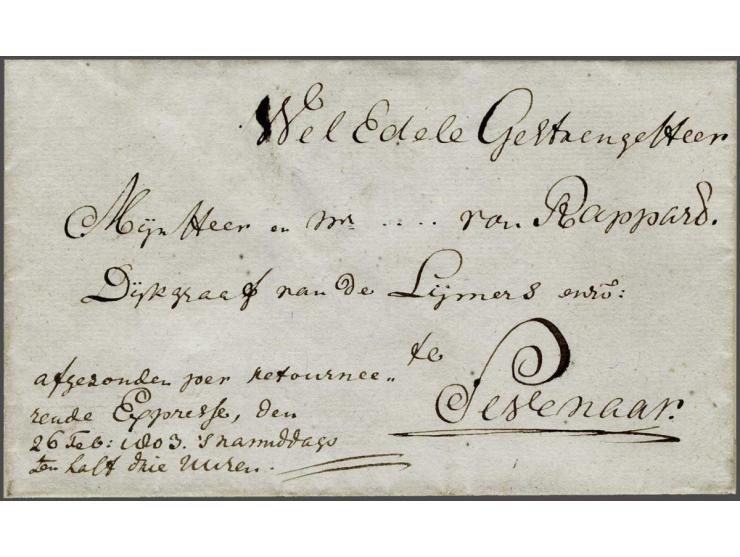 Wel Edele Gestrenge Heer
Mijn Heer en Mr .... van Rappard.
Dijkgraaf van de Lijmers enzv:
te
Sevenaar.
afgezonden per retournee„
rende Expresse, den
26 Feb: 1803. 's namiddags
ten half drie Uuren.